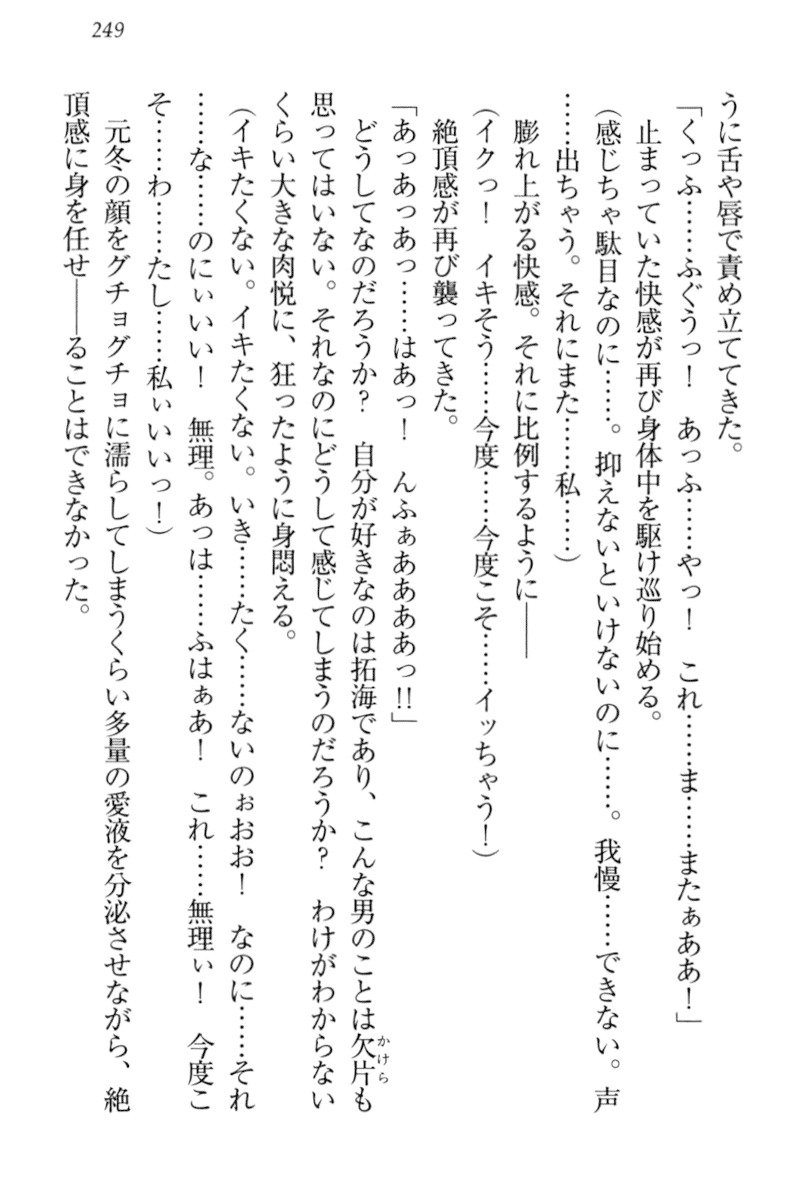 249
うに舌や唇で責め立ててきた。
「くっふ……ふぐうっ！　あっふ……やっ！　これ……ま……またぁああ！」
　止まっていた快感が再び身体中を駆け巡り始める。
（感じちゃ駄目なのに……。抑えないといけないのに……。我慢……できない。声
……出ちゃう。それにまた……私……）
　膨れ上がる快感。それに比例するように――
（イクっ！　イキそう……今度……今度こそ……イッちゃう！）
　絶頂感が再び襲ってきた。
「あっあっあっ……はあっ！　んふぁああああっ!!」
　どうしてなのだろうか？　自分が好きなのは拓海であり、こんな男のことは欠片も
思ってはいない。それなのにどうして感じてしまうのだろうか？　わけがわからない
くらい大きな肉悦に、狂ったように身悶える。
（イキたくない。イキたくない。いき……たく……ないのぉおお！　なのに……それ
……な……のにぃいい！　無理。あっは……ふはぁあ！　これ……無理ぃ！　今度こ
そ……わ……たし……私ぃいいっ！）
　元冬の顔をグチョグチョに濡らしてしまうくらい多量の愛液を分泌させながら、絶
頂感に身を任せ――ることはできなかった。